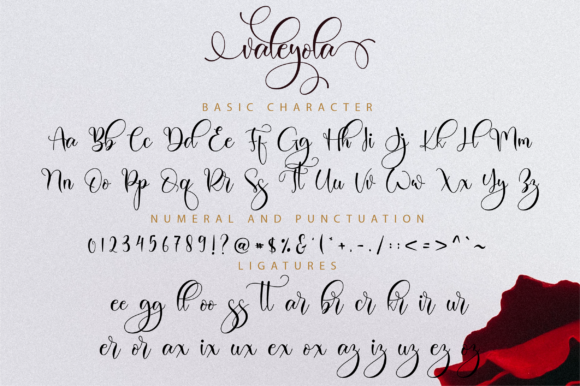 valeyola
BASIC CHARACTER
Aa Bb Cc Dd Ee Ff Gg Hh Ii Jj Kk Ll Mm
Nn Oo Pp Qq Rr Ss Tt Uu Vv Ww Xx Yy Zz
NUMERAL AND PUNCTUATION
0123456789!?@*#$%&'('+.-./::<=>^`~
LIGATURES
ee gg ll oo ss tt ar br cr kr ir ur
er or ax ix ux ex ox az iz uz ez oz